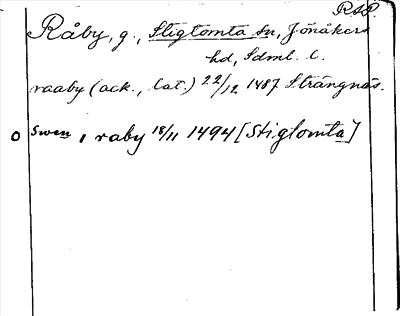 R.S.P.
Råby, g., Stigtomta sn, Jönåkers
hd, Sdml. l.
raaby (ack., lat.) 22/12 1487 Strängnäs.
o Swen i raby 18/11 1494 [Stigtomta]